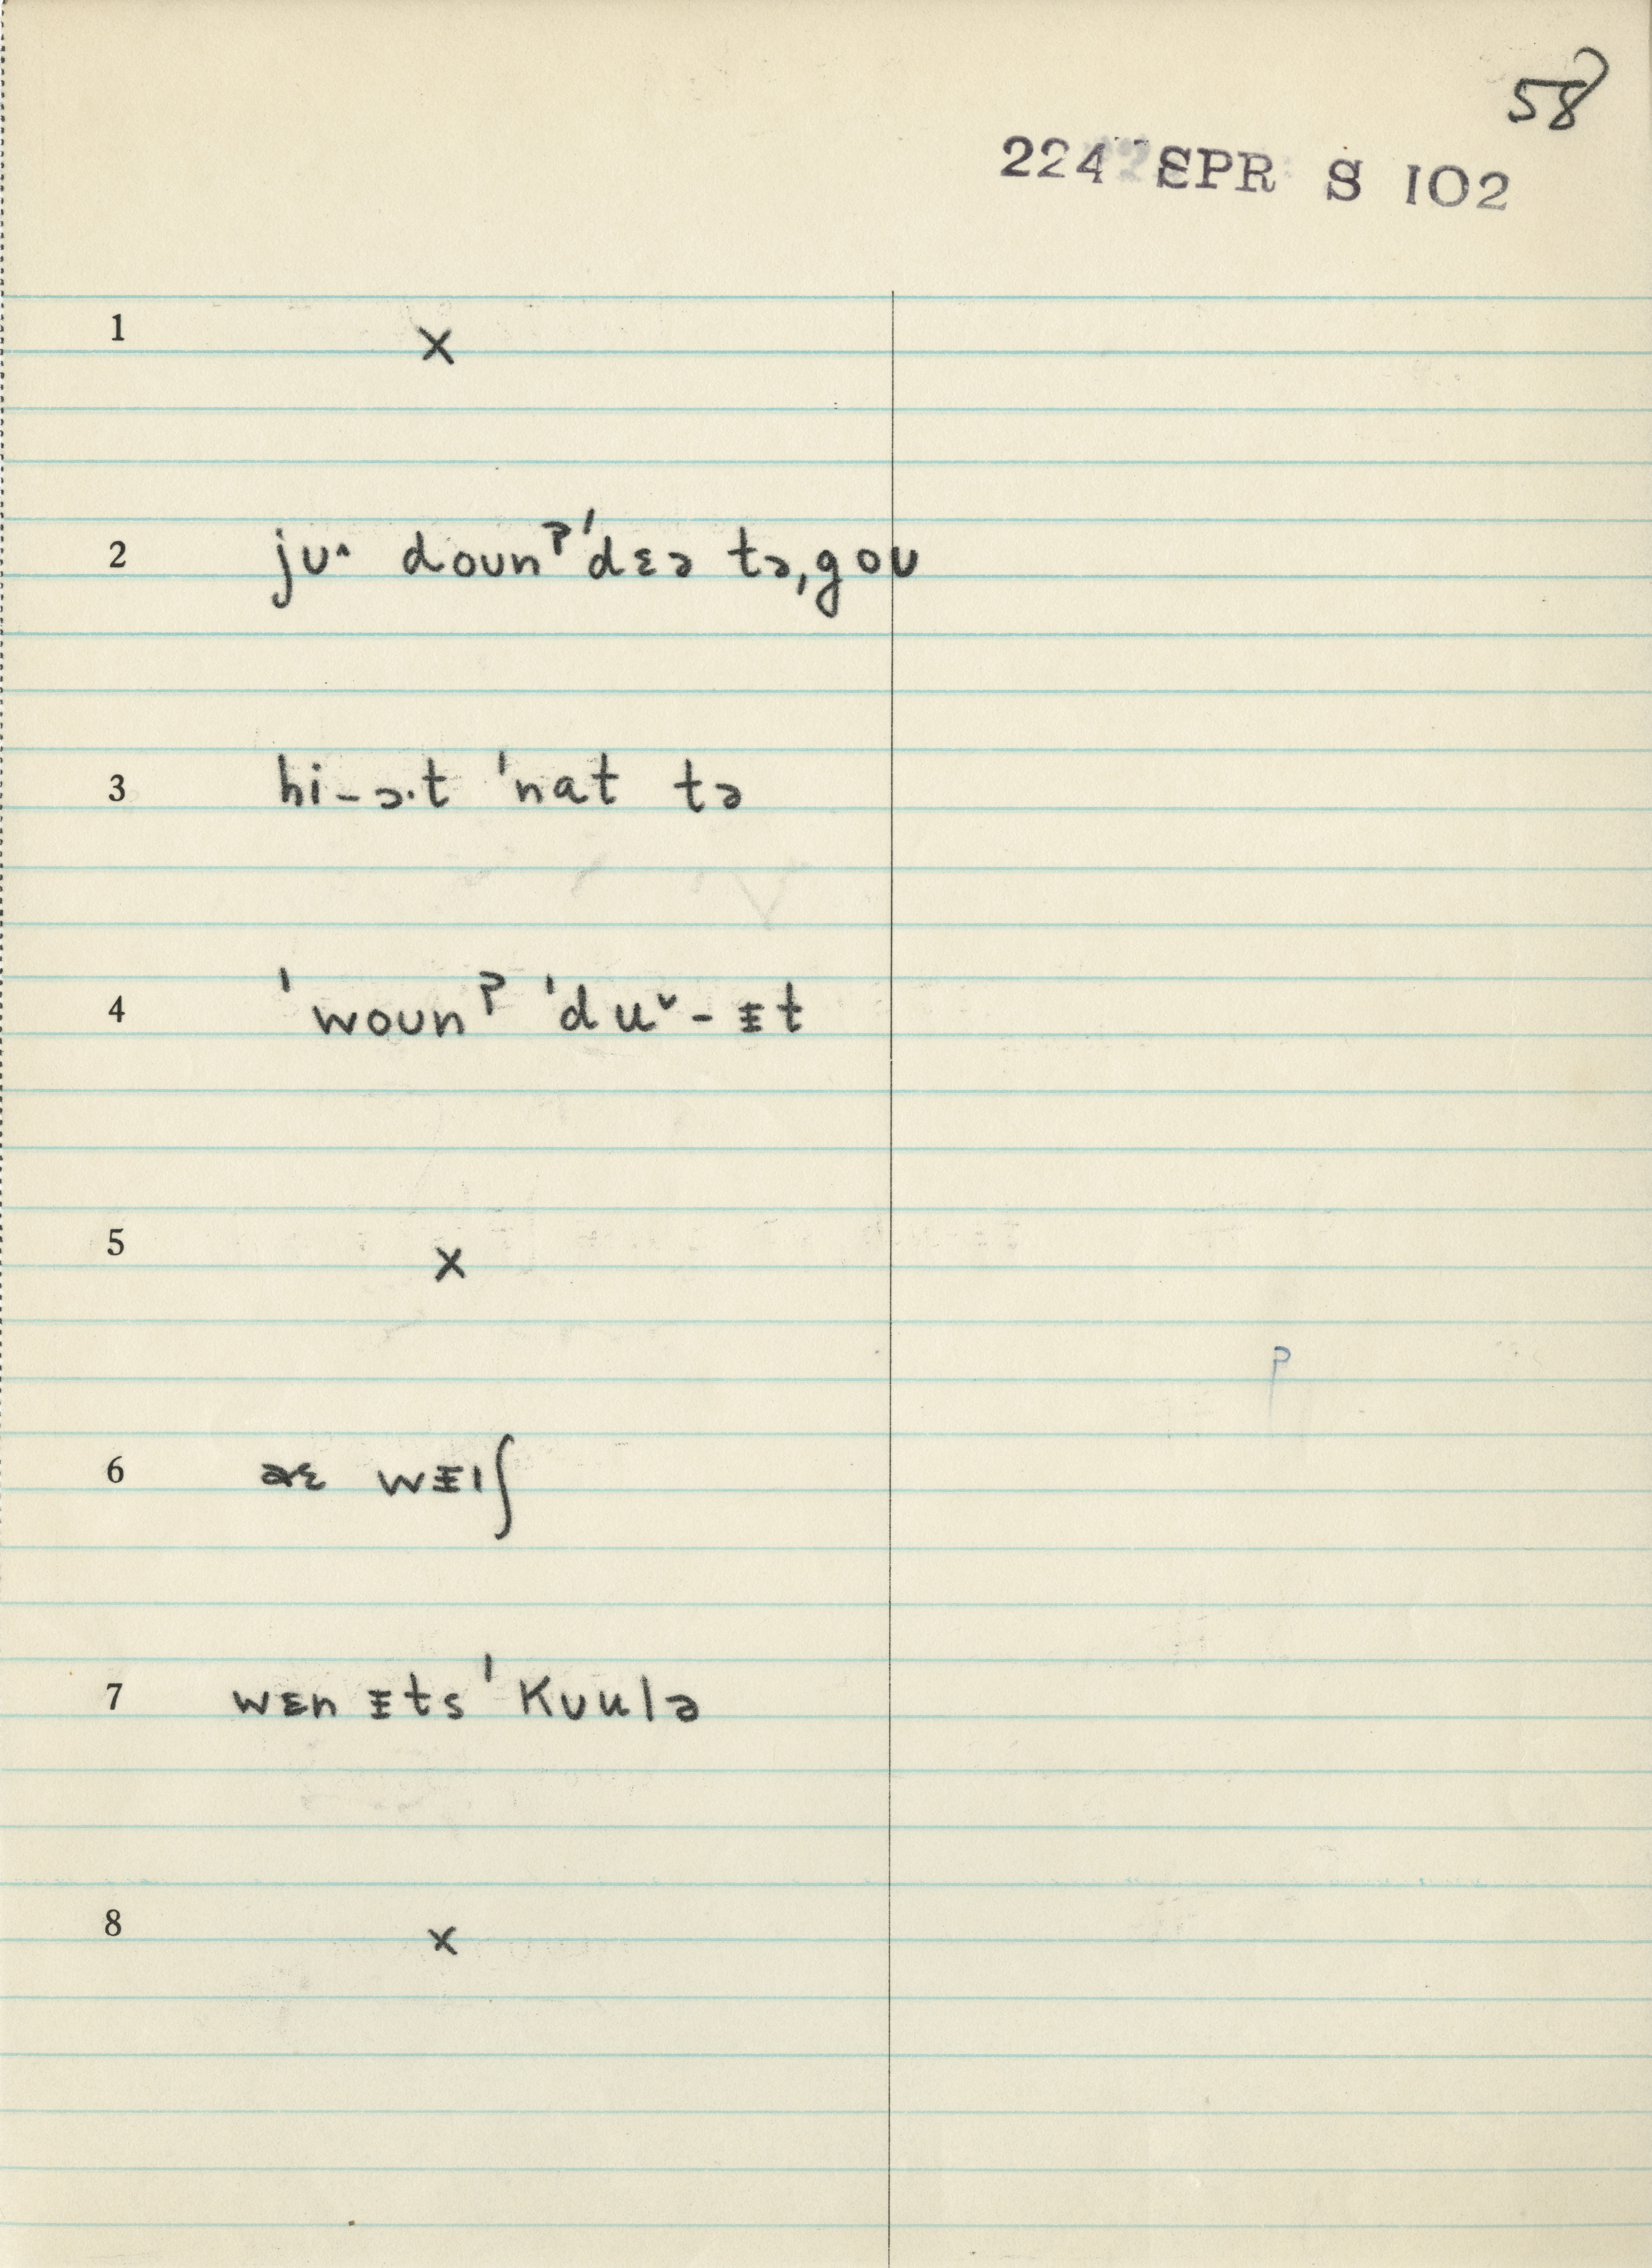 58
224 SPR S 102
1 x
2 ju^ doʊnˀ ˈdɛə tə ˌgoʊ
3 hi – ə·t ˈnat tə
4 ˈwoʊnˀ ˈduˇ – ᵻt
5 x
P
6 wᵻɪʃ
7 wɛn ᵻts ˈkʊulə
8 x